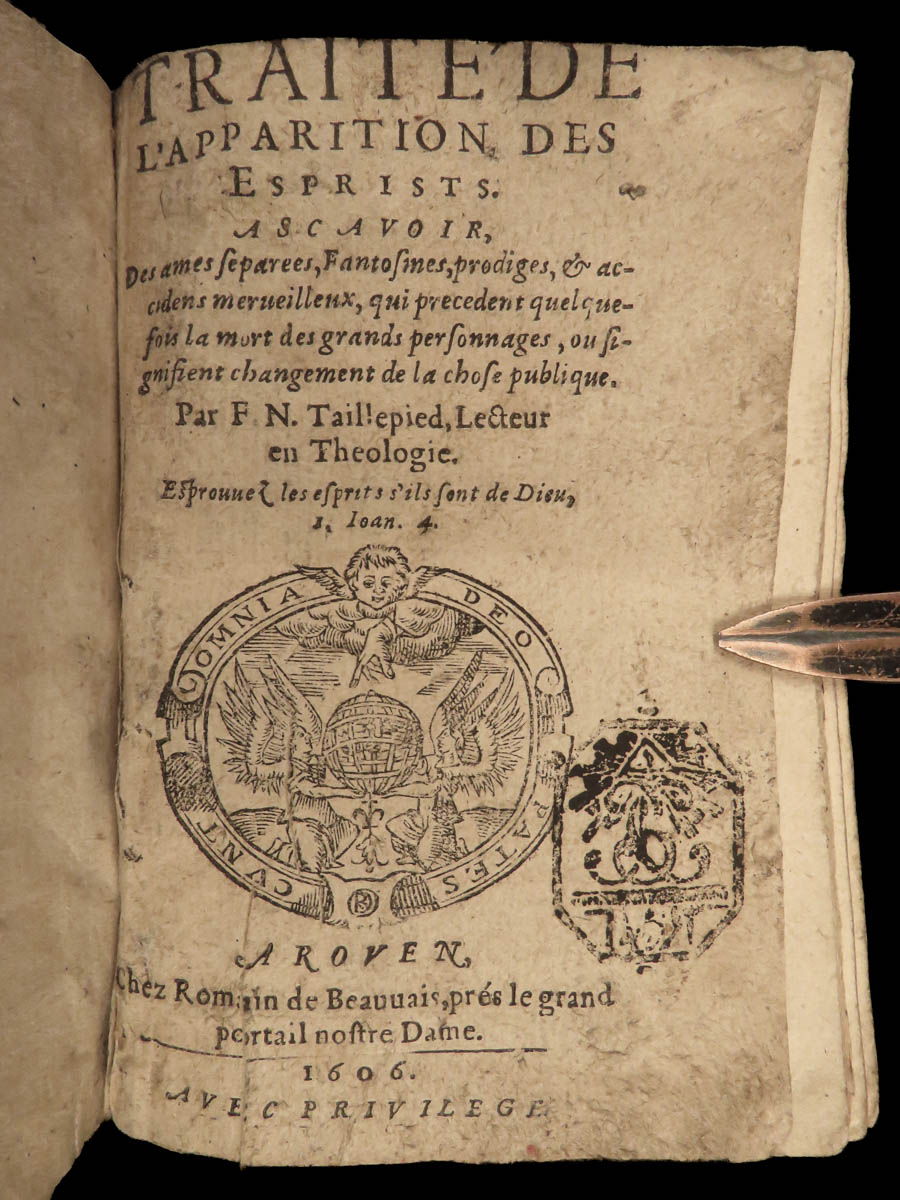 TRAITE DE
L'APPARITION, DES
ESPRISTS.
ASCAVOIR,
Des ames ſeparees, Fantoſmes, prodiges, & ac-
cidens merueilleux, qui precedent quelque-
fois la mort des grands perſonnages, ou ſi-
gnifient changement de la choſe publique.
Par F N. Taillepied, Lecteur
en Theologie.
Eſprouuez les eſprits s'ils ſont de Dieu,
1, Ioan. 4.
OMNIA DEO
PATES CVNT
A ROVEN,
Chez Romain de Beauuais, prés le grand
portail noſtre Dame.
1606.
AVEC PRIVILEGE